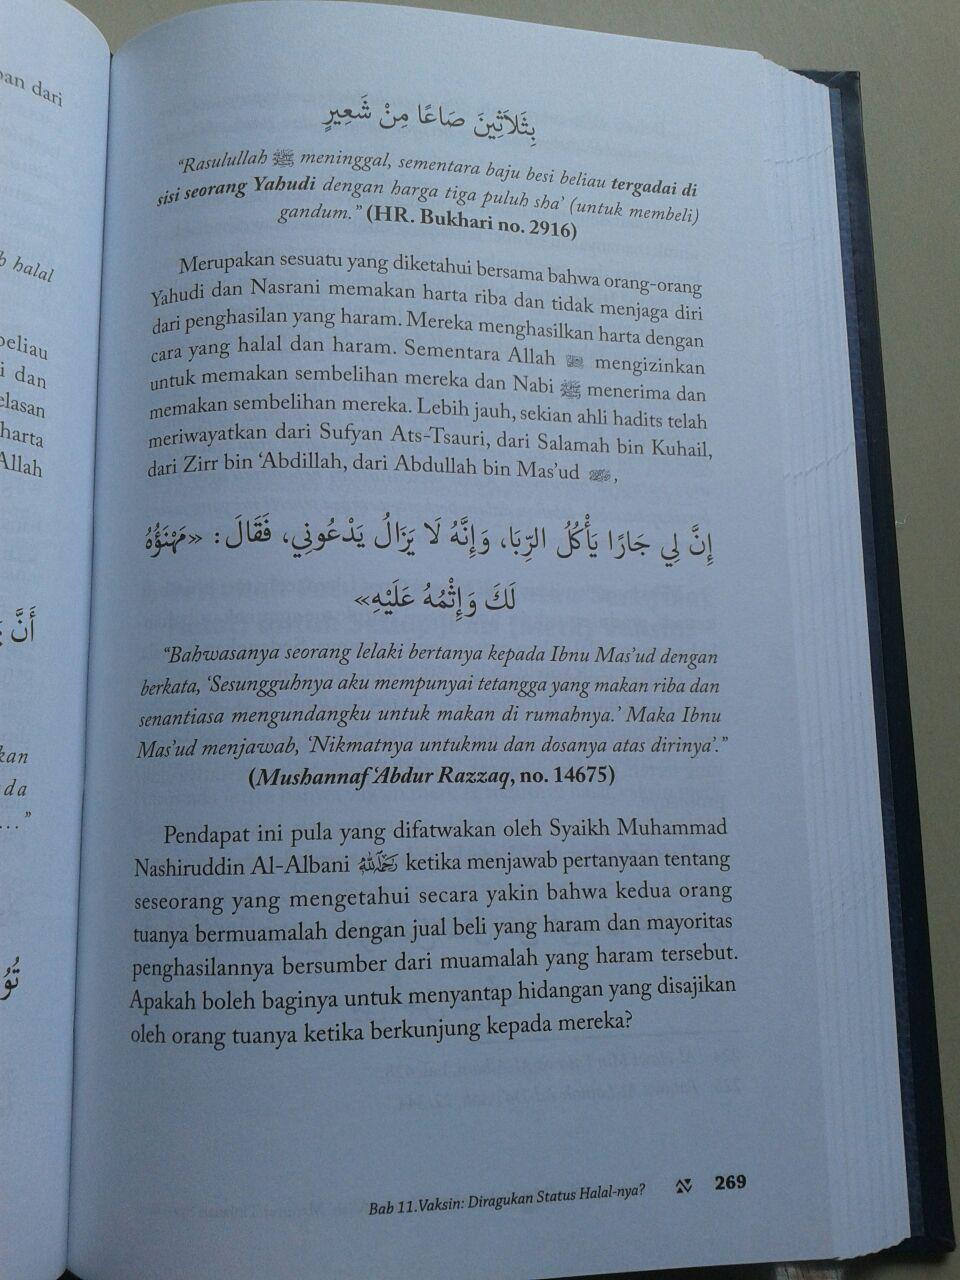 ban dari
halal
beliau
i dan
elasan
harta
Allah
أَنَّ
kan
da
..."
تُو
بِثَلَاثِينَ صَاعًا مِنْ شَعِيرٍ
"Rasulullah ﷺ meninggal, sementara baju besi beliau tergadai di
sisi seorang Yahudi dengan harga tiga puluh sha' (untuk membeli)
gandum." (HR. Bukhari no. 2916)
Merupakan sesuatu yang diketahui bersama bahwa orang-orang
Yahudi dan Nasrani memakan harta riba dan tidak menjaga diri
dari penghasilan yang haram. Mereka menghasilkan harta dengan
cara yang halal dan haram. Sementara Allah mengizinkan
untuk memakan sembelihan mereka dan Nabi ﷺ menerima dan
memakan sembelihan mereka. Lebih jauh, sekian ahli hadits telah
meriwayatkan dari Sufyan Ats-Tsauri, dari Salamah bin Kuhail,
dari Zirr bin 'Abdillah, dari Abdullah bin Mas'ud ,
إِنَّ لِي جَارًا يَأْكُلُ الرِّبَا، وَإِنَّهُ لَا يَزَالُ يَدْعُونِي، فَقَالَ: «مَهْنَؤُهُ
لَكَ وَإِثْمُهُ عَلَيْهِ»
"Bahwasanya seorang lelaki bertanya kepada Ibnu Mas'ud dengan
berkata, 'Sesungguhnya aku mempunyai tetangga yang makan riba dan
senantiasa mengundangku untuk makan di rumahnya.' Maka Ibnu
Mas'ud menjawab, 'Nikmatnya untukmu dan dosanya atas dirinya'."
(Mushannaf 'Abdur Razzaq, no. 14675)
Pendapat ini pula yang difatwakan oleh Syaikh Muhammad
Nashiruddin Al-Albani رَحِمَهُ اللَّهُ ketika menjawab pertanyaan tentang
seseorang yang mengetahui secara yakin bahwa kedua orang
tuanya bermuamalah dengan jual beli yang haram dan mayoritas
penghasilannya bersumber dari muamalah yang haram tersebut.
Apakah boleh baginya untuk menyantap hidangan yang disajikan
oleh orang tuanya ketika berkunjung kepada mereka?
Bab 11.Vaksin: Diragukan Status Halal-nya? 269